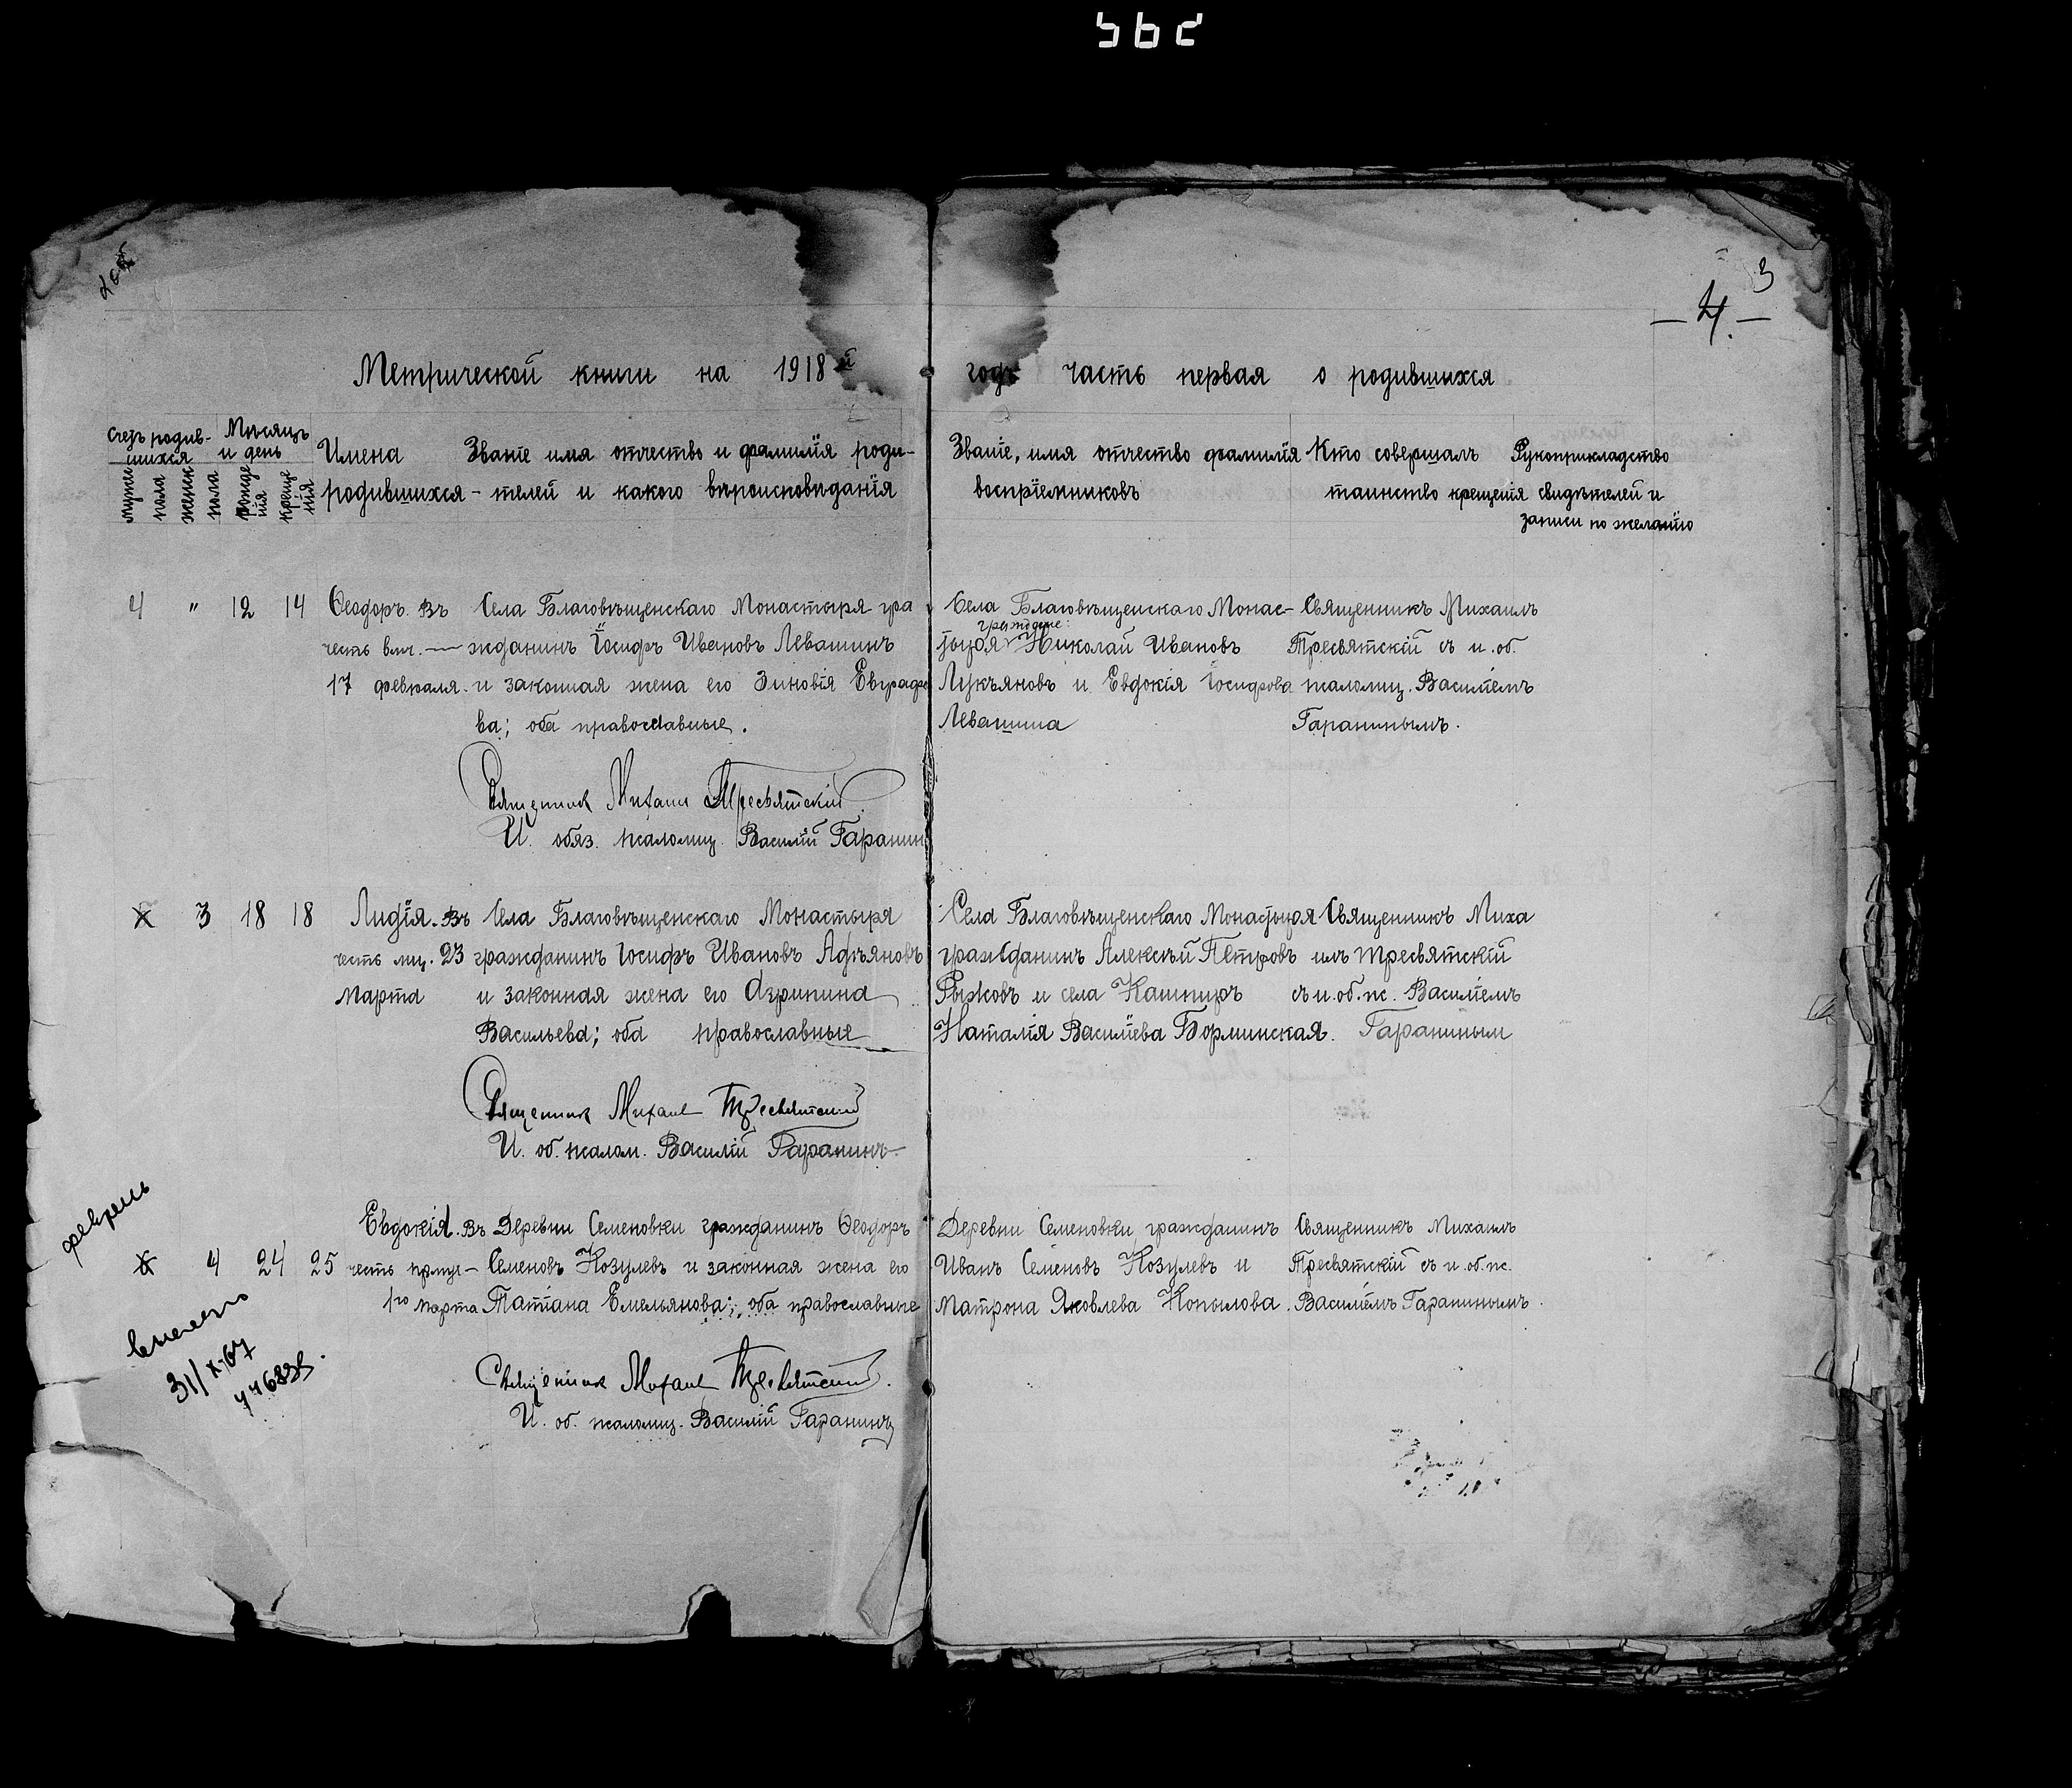 Метрической книги на 1918й годъ часть первая о родившихся
Счетъ родив-
шихся
Мѣсяцъ
и день
мужес
пола
женск
пола
рожде
нія
креще
нія
Имена
родившихся
Званіе имя отчество и фамилія роди-
телей и какого вѣроисповѣданія
Званіе, имя отчество фамилія
воспріемниковъ
Кто совершалъ
таинство крещенія
Рукоприкладство
свидѣтелей и
записи по желанію
3
— 4. —
4 " 12 14
Ѳеодоръ. Въ
честь
17 февраля.
Села Благовѣщенскаго Монастыря гра
жданинъ Іосифъ Ивановъ Левашинъ
и законная жена его Зиновія Евграфо
ва; оба православные.
Священник Михаил Тресвятский
И. обяз. псаломщ. Василій Гаранин
Села Благовѣщенскаго Монас-
граждане:
тыря Николай Ивановъ
Лукъяновъ и Евдокія Іосифова
Левашина
Священникъ Михаилъ
Тресвятскій съ и. об.
псаломщ. Василіемъ
Гаранинымъ.
3 18 18
Лидія. Въ
честь мц. 23
Марта
Села Благовѣщенскаго Монастыря
гражданинъ Іосифъ Ивановъ Адъяновъ
и законная жена его Агрипина
Васильева; оба православные
Священник Михаил Тресвятский
И. об. псалом. Василій Гаранинъ
Села Благовѣщенскаго Монастыря
гражданинъ Алексѣй Петровъ
Рыжковъ и села Кашпиръ
Наталія Василіева Борминская.
Священникъ Миха
илъ Тресвятскій
съ и. об. пс. Василіемъ
Гараниным
февраль
4 24 25
Евдокія. Въ
честь прмуч-
1го марта
Деревни Семеновки гражданинъ Ѳеодоръ
Семеновъ Козулевъ и законная жена его
Татіана Емельянова; оба православные
Священник Михаил Тресвятский.
И. об. псаломщ. Василій Гаранинъ
Деревни Семеновки гражданинъ
Иванъ Семеновъ Козулевъ и
Матрона Яковлева Копылова.
Священникъ Михаилъ
Тресвятскій съ и. об. пс.
Василіемъ Гаранинымъ.
31/X-67